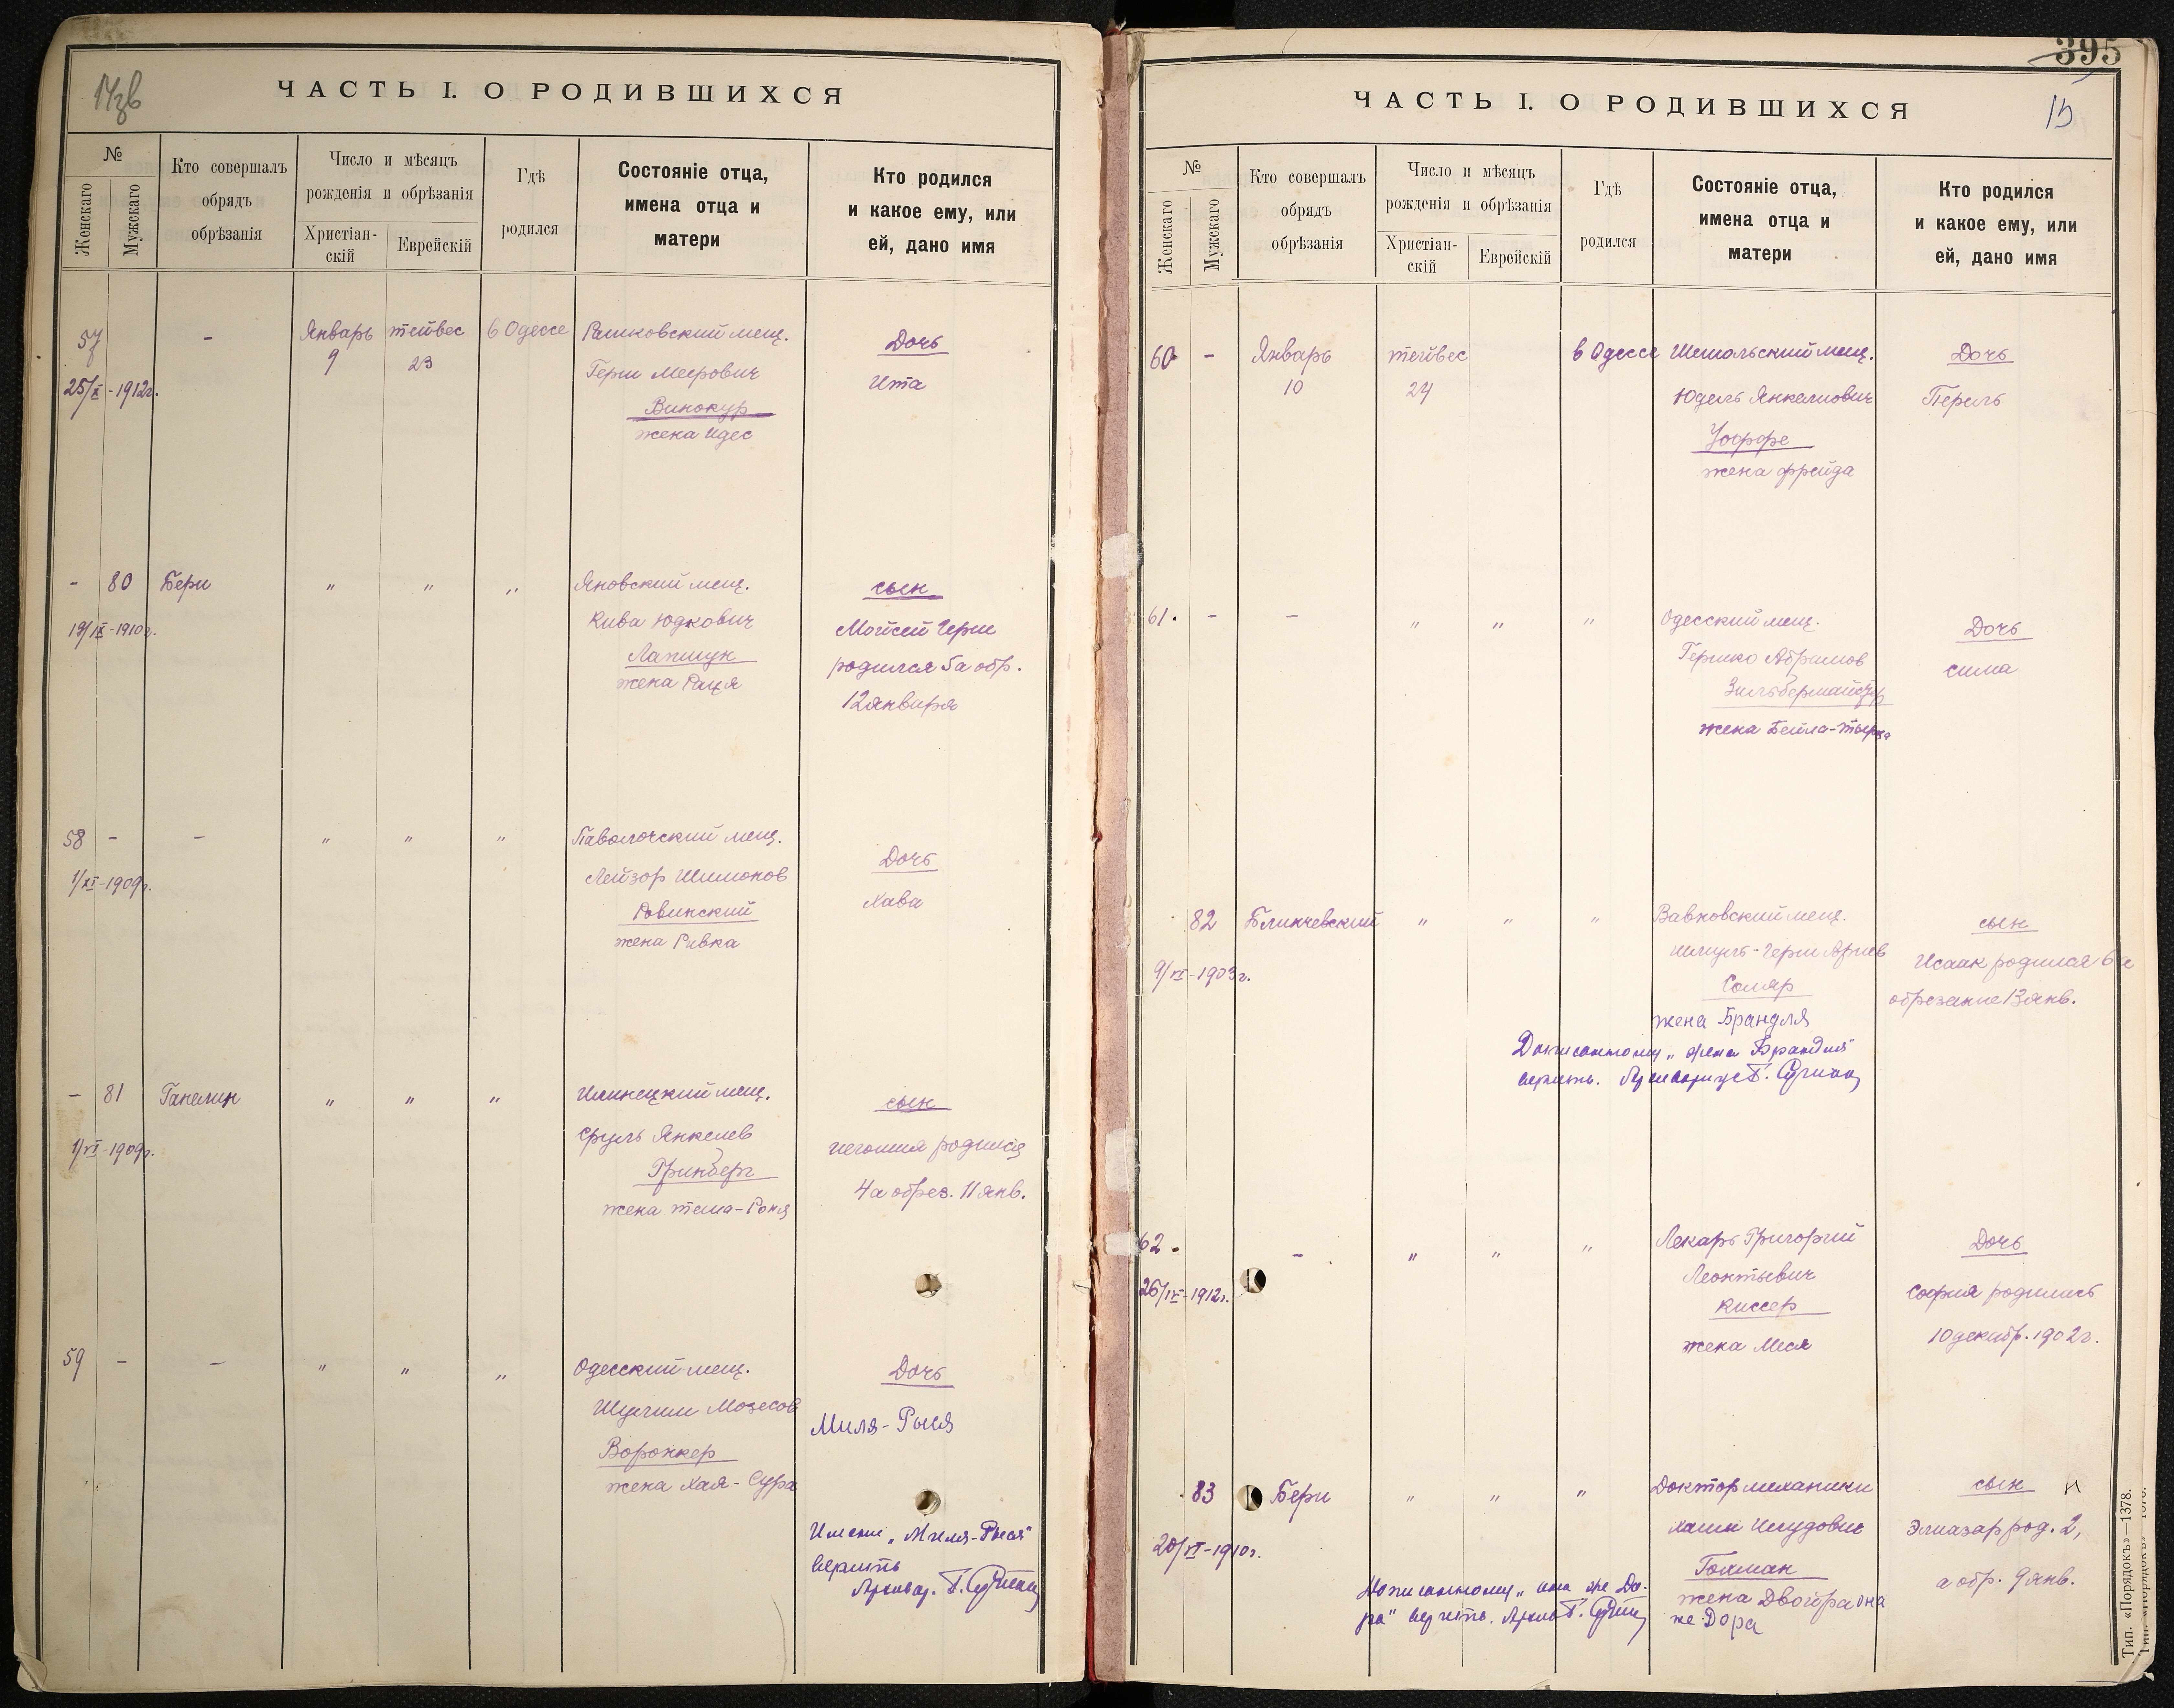 ЧАСТЬ I. О РОДИВШИХСЯ
№
Женскаго
Мужскаго
Кто совершалъ
обрядъ
обрѣзанія
Число и мѣсяцъ
рожденія и обрѣзанія
Христіан-
скій
Еврейскій
Гдѣ
родился
Состояніе отца,
имена отца и
матери
Кто родился
и какое ему, или
ей, дано имя
57 - Январь тейвес в Одессе Рашковский мещ. Дочь
9 23 Герш Меерович Ита
25/X-1912г.
Винокур
жена Идес
- 80 Бериш " " " Яновский мещ. сын
19/IX-1910г. Кива Юдкович Мойсей Герш
Лапшук родился 5 а обр.
жена Рация 12 января
58 - - " " " Паволочский мещ. Дочь
1/XI-1909г. Лейзор Шимонов Хава
Ровинский
жена Ривка
- 81 Ганелин " " " Илинецкий мещ. сын
1/VI-1909г. Сруль Янкелев родился
Гринберг 4 а обрез. 11 янв.
жена
59 - - " " " Одесский мещ. Дочь
Мозесов Миля-Рыся
Воронкер
жена Хая-Сура
Имени „Миля-Рыся"
верить
395
15
ЧАСТЬ I. О РОДИВШИХСЯ
№
Женскаго
Мужскаго
Кто совершалъ
обрядъ
обрѣзанія
Число и мѣсяцъ
рожденія и обрѣзанія
Христіан-
скій
Еврейскій
Гдѣ
родился
Состояніе отца,
имена отца и
матери
Кто родился
и какое ему, или
ей, дано имя
60 - Январь тейвес в Одессе мещ. Дочь
10 24 Юдель Янкелиович Перль
жена Фрейда
61. - - " " " Одесский мещ. Дочь
Гершко Абрамов Сима
жена Бейла-
82 " " " мещ. сын
9/VI-1903г. Шмуль-Герш Исаак родился 6 а
Соляр обрезание 13 янв.
жена Брандля
„жена Брандля"
верить.
62. - " " " Лекарь Григорий Дочь
26/IX-1912г. Леонтьевич София родилась
Киссер 10 декабр. 1902г.
жена Меся
83 Бериш " " " Доктор механики сын
20/VI-1910г. Хаим Элиазар род. 2,
а обр. 9 янв.
жена Двойра она
же Дора
„она же До-
ра" верить.
Тип. «Порядокъ»—1378.